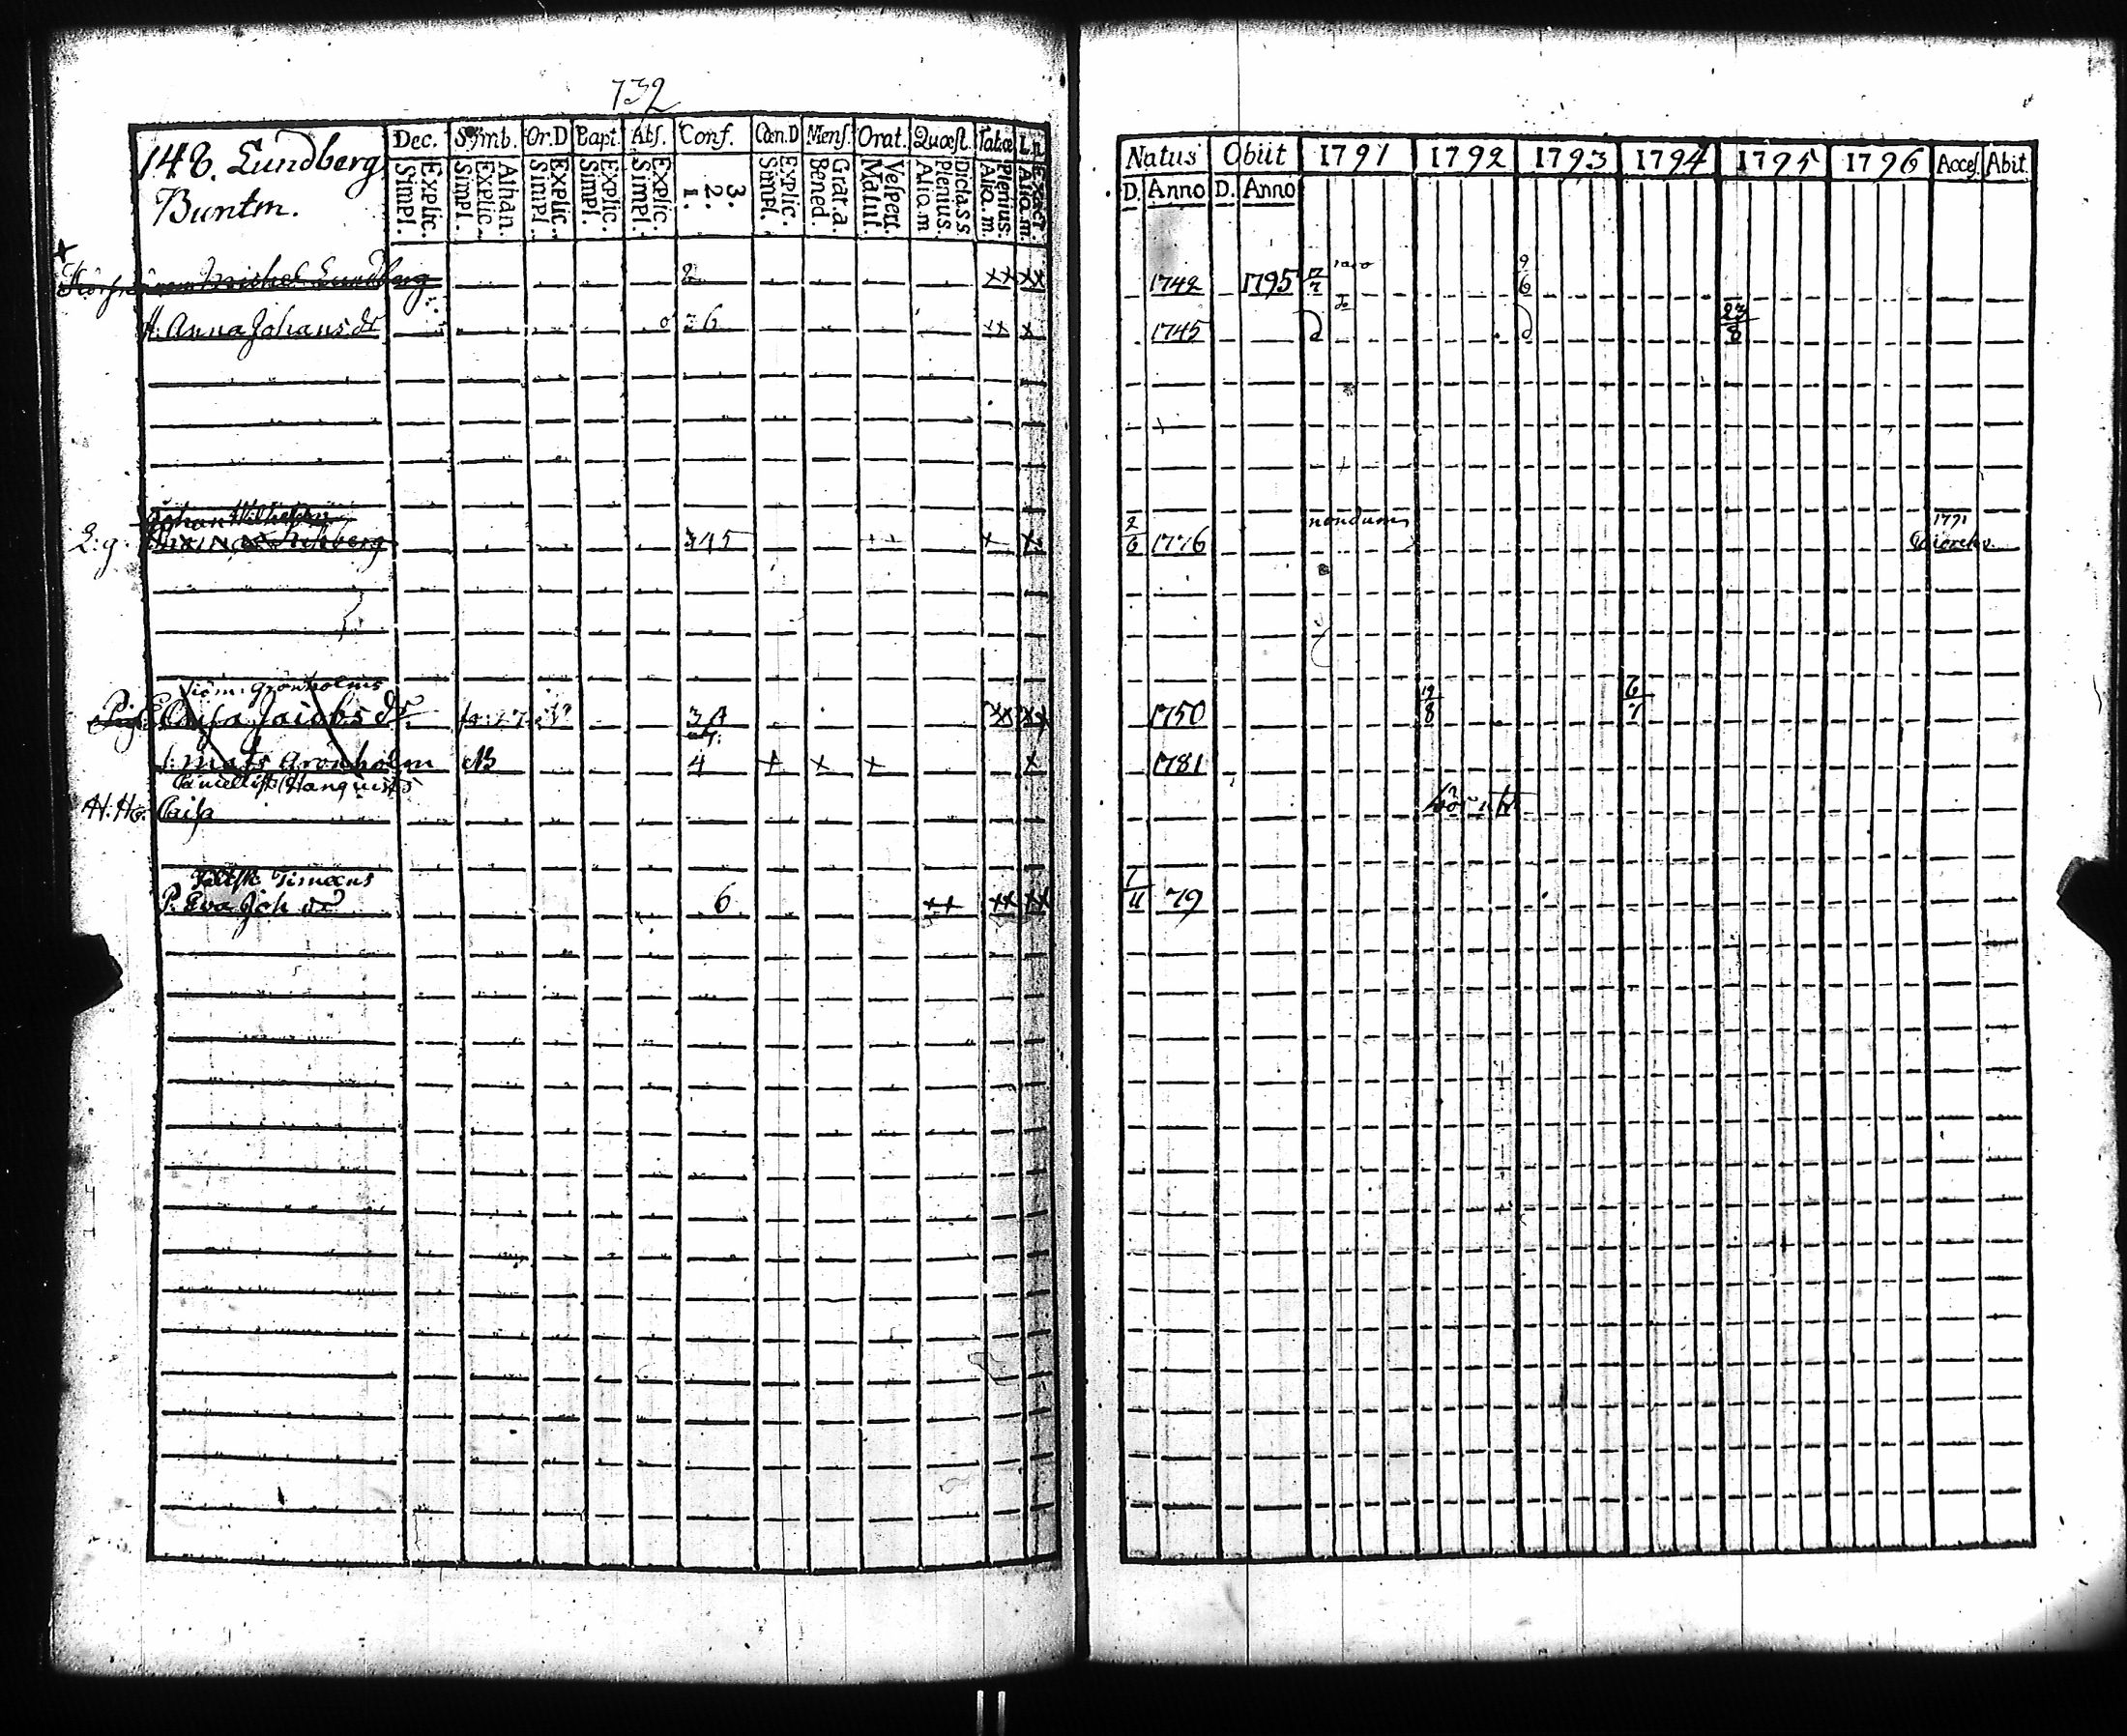 732
148. Lundberg
Buntm.
Dec. Symb. Or.D Bapt. Abs. Conf. Cœn.D Mens. Orat. Quæst. Tabæ L.n.
Explic. Simpl. Athan. Explic. Simpl. Explic. Simpl. Explic. Simpl. Explic. Simpl. 3. 2. 1. Explic. Simpl. Grat.a. Bened. Vespert. Matut. Dict.a s.s Plenius. Aliq.m Plenius. Aliq.m. Exact. Aliq.m.
Natus Obiit 1791 1792 1793 1794 1795 1796 Acces. Abit.
D. Anno D. Anno
Michel Lundberg 2 xx xx 1742 1795 17/7 raro 9/6
H. Anna Johans dr 6 xx x 1745 do 23/8
Johan Wilhelm
L:g. Lihberg 345 x x 2/6 1776 nondum 1791
Grönholms
Pig. Caisa Jacobs dr 3 xx xx 1750 19/8 6/7
s: Mats Grönholm 4 x x x x 1781
Cancellist Hanquists
H.Ho. Caisa
Timæus
P. Eva Joh dr 6 xx xx xx 7/11 79